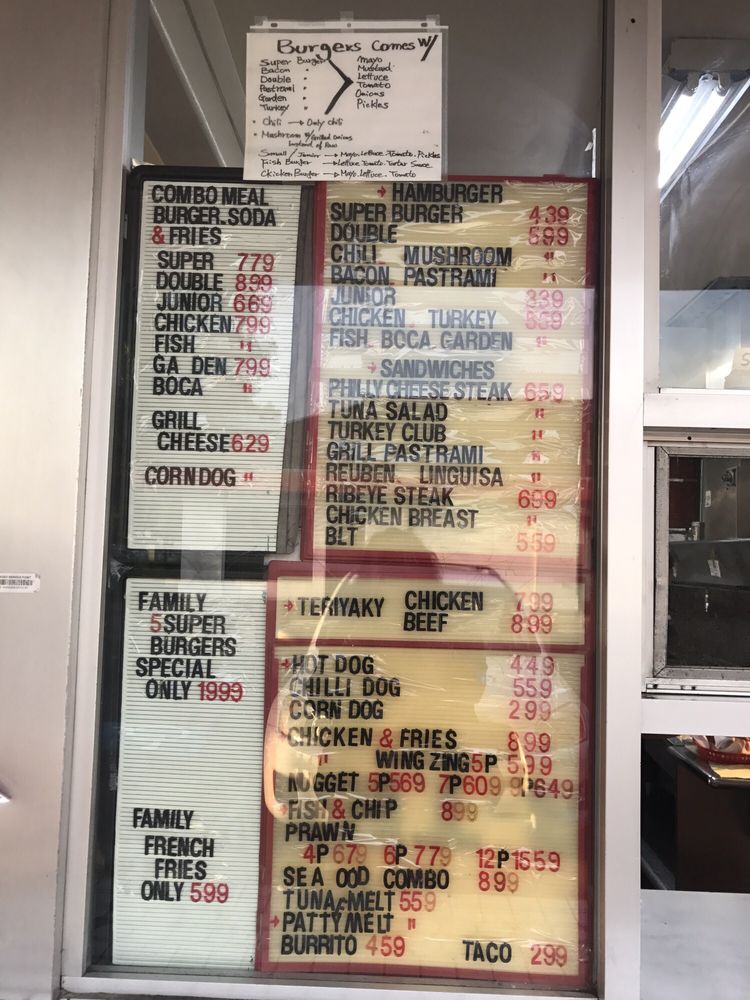 Burgers Comes W/
Super Burger
Bacon "
Double "
Pastrami "
Garden "
Turkey "
Mayo
Mustard
Lettuce
Tomato
Onions
Pickles
• Chili → Only chili
• Mushroom W/ Grilled Onions
Instead of Raw
Small / Junior → Mayo. Lettuce. Tomato. Pickles
Fish Burger → Lettuce. Tomato. Tartar Sauce
Chicken Burger → Mayo. Lettuce. Tomato
COMBO MEAL
BURGER.SODA
& FRIES
SUPER 779
DOUBLE 899
JUNIOR 669
CHICKEN 799
FISH "
GA DEN 799
BOCA "
GRILL
CHEESE 629
CORN DOG "
→ HAMBURGER
SUPER BURGER 439
DOUBLE 599
CHILI MUSHROOM "
BACON. PASTRAMI "
JUNIOR 339
CHICKEN. TURKEY 559
FISH. BOCA. GARDEN "
→ SANDWICHES
PHILLY CHEESE STEAK 659
TUNA SALAD "
TURKEY CLUB "
GRILL PASTRAMI "
REUBEN. LINGUISA "
RIBEYE STEAK 699
CHICKEN BREAST "
BLT 559
FAMILY
5 SUPER
BURGERS
SPECIAL
ONLY 1999
FAMILY
FRENCH
FRIES
ONLY 599
→ TERIYAKY CHICKEN 799
BEEF 899
→ HOT DOG 449
CHILLI DOG 559
CORN DOG 299
→ CHICKEN & FRIES 899
" WING ZING 5P 599
NUGGET 5P 569 7P 609 9P 649
→ FISH & CHIP 899
PRAWN
4P 679 6P 779 12P 1559
SEA OOD COMBO 899
TUNA MELT 559
→ PATTY MELT "
BURRITO 459 TACO 299